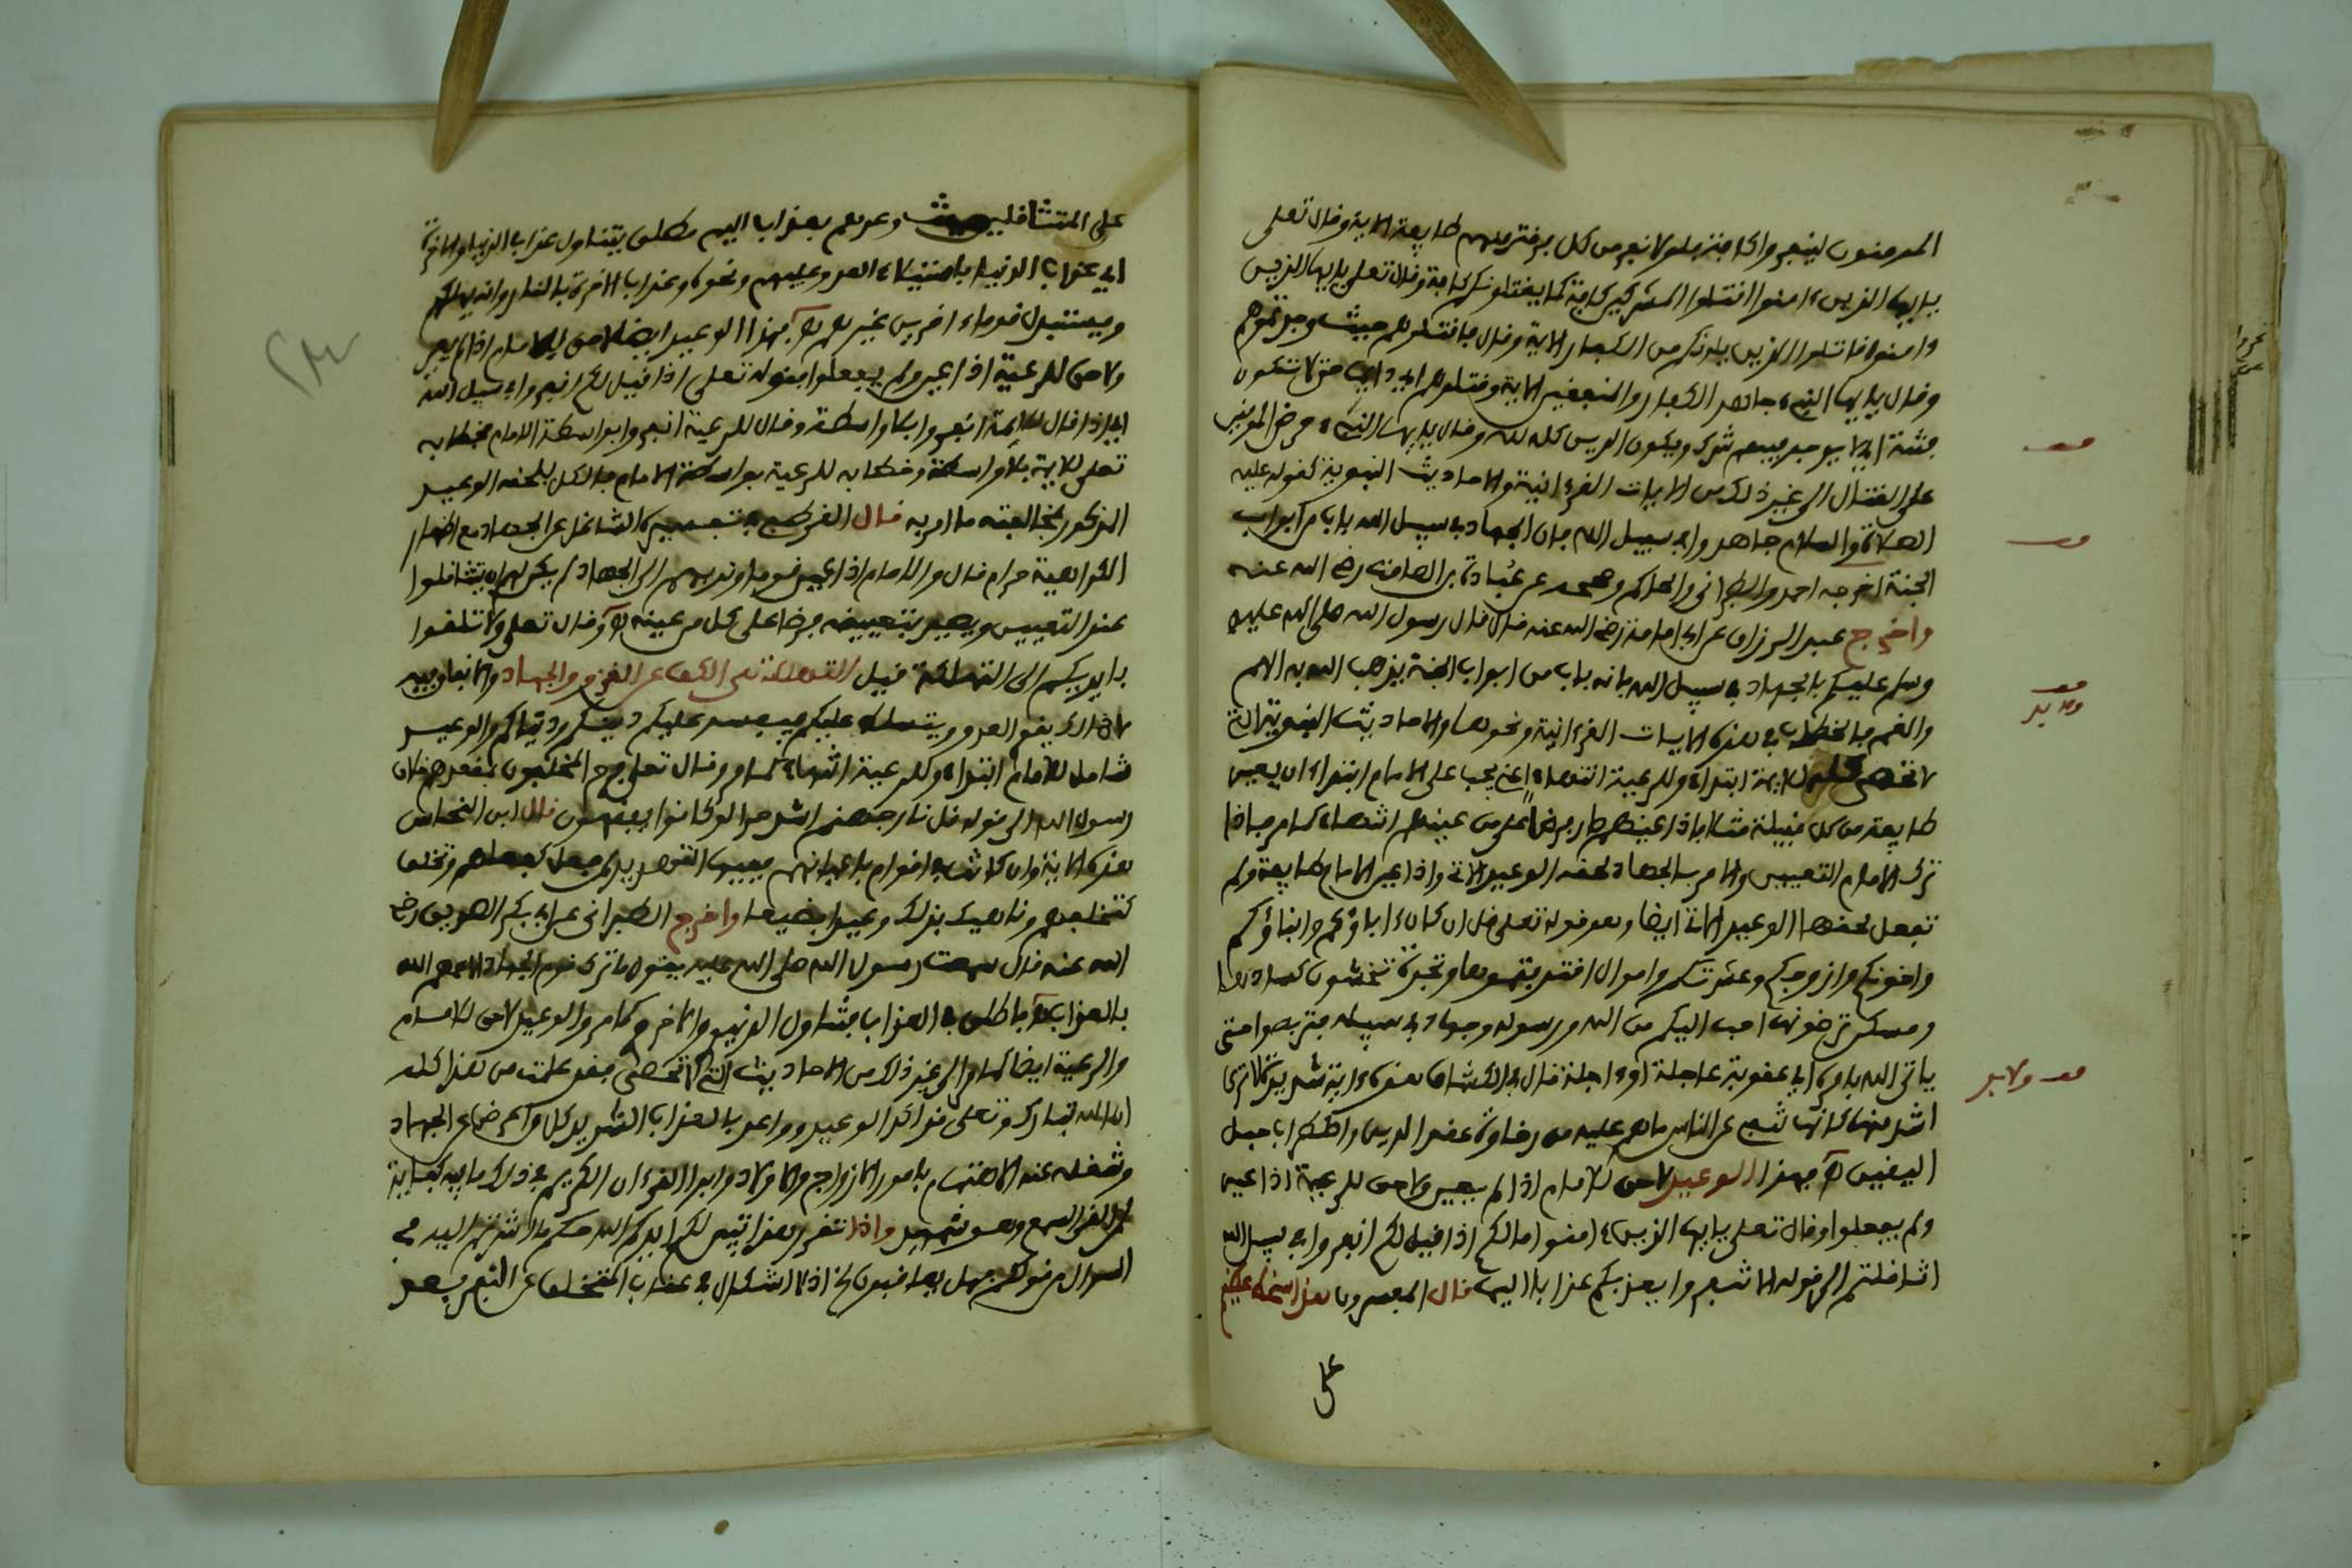 المومنون لينفروا كافة فلولا نفر من كل فرقة منهم طايفة الاية وقال تعلى
يايها الذين ءامنوا اقتلوا المشركين كافة كما يقتلونكم كافة وقال تعلى يايها الذين
ءامنوا قاتلوا الذين يلونكم من الكفار الاية وقال فاقتلوهم حيث وجدتموهم
وقال يايها النبيء جاهد الكفار والمنفقين الاية وقتلوهم اي حتى لا تكون
فتنة اي لا يوجد فيهم شرك ويكون الدين كله لله وقال يايها النبيء حرض المومنين
على القتال الى غير ذلك من الايات القرءانية والاحاديث النبوية كقوله عليه
الصلاة والسلام جاهدوا في سبيل الله فان الجهاد في سبيل الله باب من ابواب
الجنة اخرجه احمد والطبراني والحاكم وصححه عن عبادة بن الصامت رضي الله عنه
واخرج عبد الرزاق عن ابي امامة رضي الله عنه قال قال رسول الله صلى الله عليه
وسلم عليكم بالجهاد في سبيل الله فانه باب من ابواب الجنة يذهب الله به الهم
والغم فالخطاب في هذه الايات القرءانية ونحوها والاحاديث النبوية التي
لا تحصى للايمة ابتداء وللرعية انتهاء اعني يجب على الامام ابتداء ان يعين
طايفة من كل قبيلة مثلا فاذا عينهم صار فرضا على من عينهم انتهاء كما مر فاذا
ترك الامام التعيين والامر بالجهاد لحقه الوعيد الاتي واذا عين الامام طايفة ولم
تفعل لحقها الوعيد الاتي ايضا وهو قوله تعلى قل ان كان ءاباؤكم وابناؤكم
واخونكم وازوجكم وعشيرتكم واموال اقترفتموها وتجرة تخشون كسادها
ومسكن ترضونها احب اليكم من الله ورسوله وجهاد في سبيله فتربصوا حتى
ياتي الله بامره اي عقوبة عاجلة او ءاجلة قال في الكشاف هذه ءاية شديدة لا ترى
اشد منها كانها تنعي على الناس ما هم عليه من رخاوة عقد الدين واضطراب حبل
اليقين فهذا الوعيد لاحق للامام اذا لم يعين ولاحق للرعية اذا عين
ولم يفعلوا وقال تعلى يايها الذين ءامنوا مالكم اذا قيل لكم انفروا في سبيل الله
اثاقلتم الى قوله الا تنفروا يعذبكم عذابا اليما قال المفسرون هذا سخط عظيم
على
على المتثاقلين حيث وعدهم بعذاب اليم مطلق يتناول عذاب الدنيا والاخرة
اي عذاب الدنيا باستيلاء العدو عليهم ونحوه وعذاب الاخرة بالنار وانه يهلكهم
ويستبدل قوما ءاخرين غيرهم فهذا الوعيد ايضا لاحق للامام اذا لم يعين
ولاحق للرعية اذا عين ولم يفعلوا فقوله تعلى اذا قيل لكم انفروا في سبيل الله
اي اذا قال للايمة انفروا بلا واسطة وقال للرعية انفروا بواسطة الامام فخطابه
تعلى للايمة بلا واسطة وخطابه للرعية بواسطة الامام فالكل يلحقه الوعيد
المذكور بمخالفته ما امر به قال القرطبي في تفسيره التثاقل عن الجهاد مع اظهار
الكراهية حرام قال والامام اذا عين قوما وندبهم الى الجهاد لم يكن لهم ان يتثاقلوا
عند التعيين ويصير بتعيينه فرضا على كل من عينه وقال تعلى ولا تلقوا
بايديكم الى التهلكة قيل التهلكة هي الكف عن الغزو والجهاد والانفاق فيه
لان ذلك يقوي العدو ويتسلط عليكم فيفسد عليكم دينكم ودنياكم والوعيد
شامل للامام ابتداء وللرعية انتهاء كما مر وقال تعلى فرح المخلفون بمقعدهم خلاف
رسول الله الى قوله قل نار جهنم اشد حرا لو كانوا يفقهون قال ابن النحاس
هذه الاية وان كانت في اقوام باعيانهم ففيها التهديد لمن فعل كفعلهم وتخلف
كتخلفهم وناهيك بذلك وعيدا فظيعا واخرج الطبراني عن ابي بكر الصديق رضي
الله عنه قال سمعت رسول الله صلى الله عليه يقول ما ترك قوم الجهاد الا عمهم الله
بالعذاب فاطلق في العذاب فتناول الدنيوي والاخروي كما مر والوعيد لاحق للامام
والرعية ايضا كما مر الى غير ذلك من الاحاديث التي لا تحصى فقد علمت من هذا كله
ان الله تبارك وتعلى قد اكد الوعيد وواعد بالعذاب الشديد كل من اعرض عن الجهاد
وشغله عنه الاهتمام بامور الازواج والاولاد وايراد القرءان الكريم في ذلك ما فيه كفاية
لمن القى السمع وهو شهيد واذا تقرر هذا تبين لكم ايدكم الله حكم ما اشرتم اليه في
السوال من قولكم فهل يعاقبون اذ لا اشكال في عقاب المتخلف عن النفر بعد